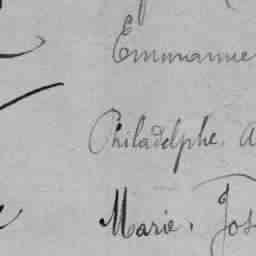 Emmanue
Philadelphe, A
Marie, Jos